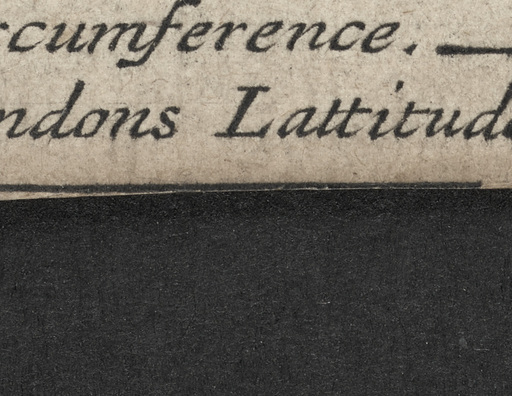 rcumference. —
ndons Lattitude